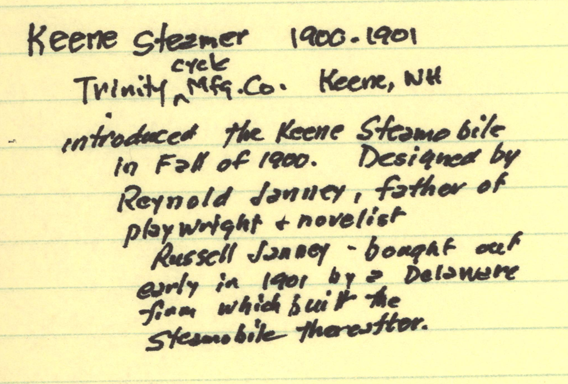 Keene Steamer 1900-1901
Trinity cycle Mfg. Co. Keene, NH
introduced the Keene Steamobile
in Fall of 1900. Designed by
Reynold Janney, father of
playwright + novelist
Russell Janney - bought out
early in 1901 by a Delaware
firm which built the
Steamobile thereafter.